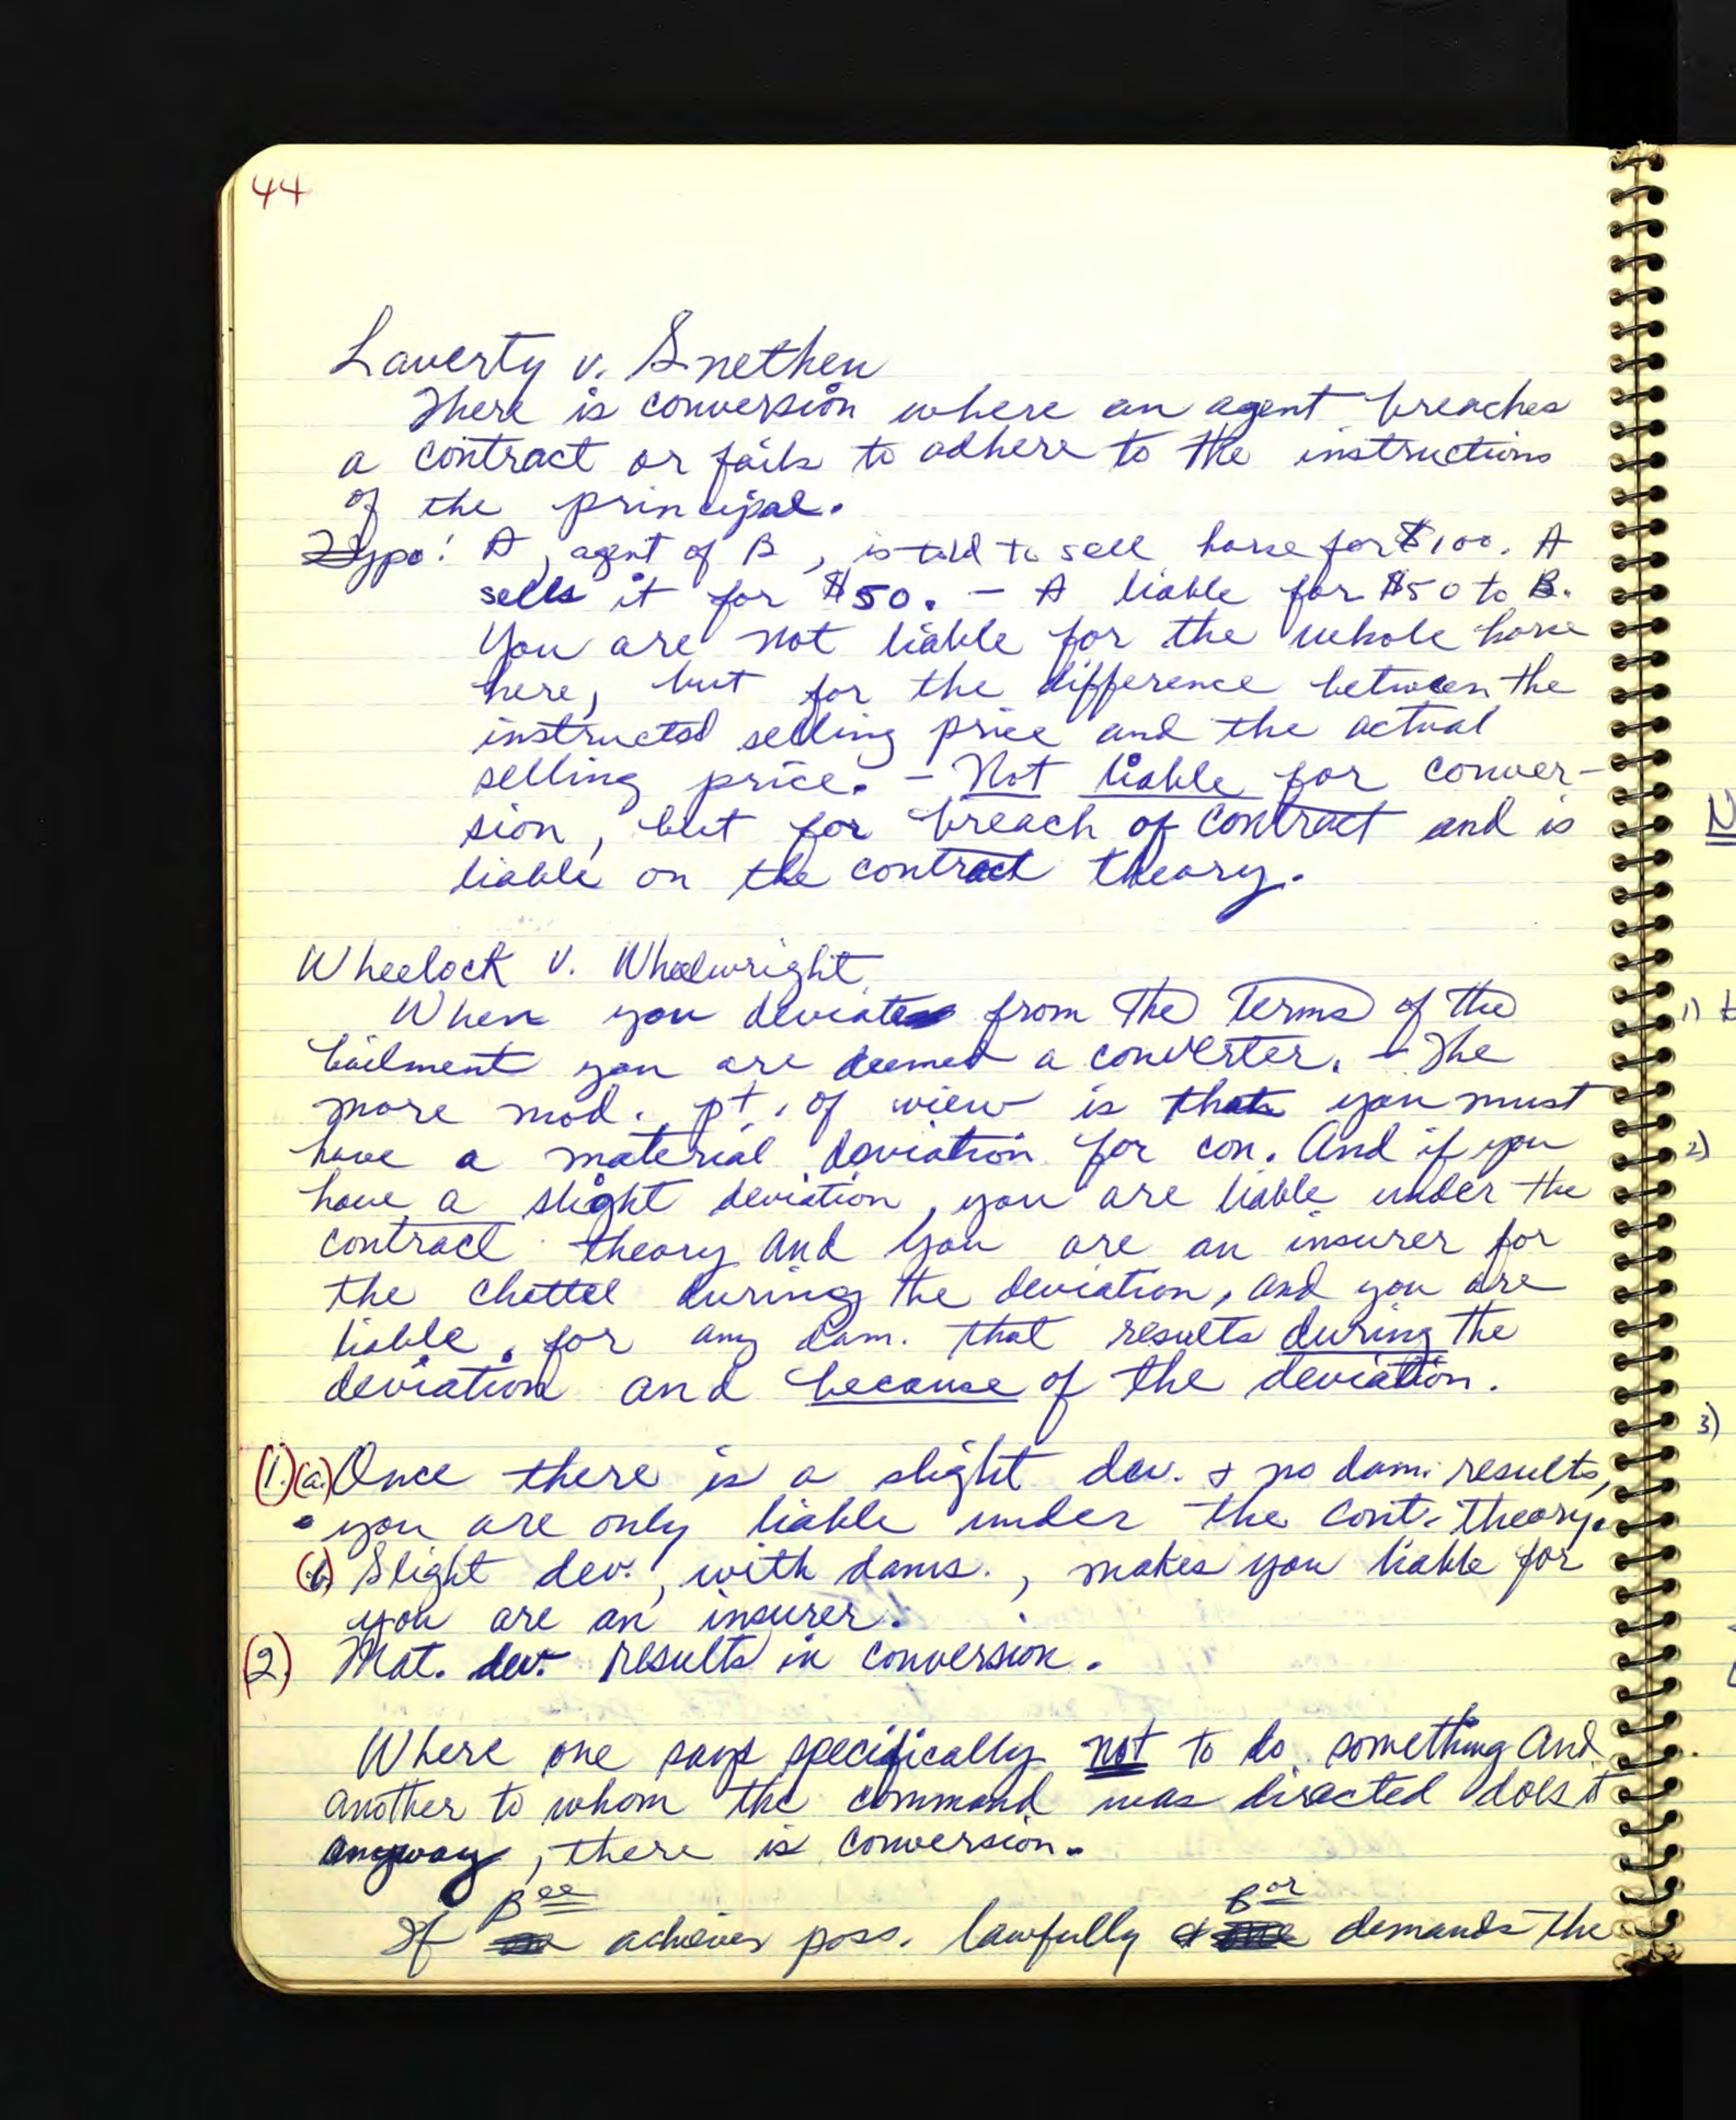 44
Laverty v. Snethen
There is conversion where an agent breaches
a contract or fails to adhere to the instructions
of the principal.
Hypo: A, agent of B, is told to sell horse for $100. A
sells it for $50. - A liable for $50 to B.
You are not liable for the whole horse
here, but for the difference between the
instructed selling price and the actual
selling price. - Not liable for conver-
sion, but for breach of contract and is
liable on the contract theory.
Wheelock v. Wheelwright
When you deviate from the terms of the
bailment you are deemed a converter. - The
more mod. pt. of view is that you must
have a material deviation for con. And if you
have a slight deviation, you are liable under the
contract theory and you are an insurer for
the chattel during the deviation, and you are
liable for any dam. that results during the
deviation and because of the deviation.
(1.) (a.) Once there is a slight dev. & no dam. results,
you are only liable under the cont. theory.
(b) Slight dev., with dams., makes you liable for
you are an insurer.
(2.) Mat. dev. results in conversion.
Where one says specifically not to do something and
another to whom the command was directed does it
anyway, there is conversion.
If Bee achieves poss. lawfully & Bor demands the
1)
2)
3)